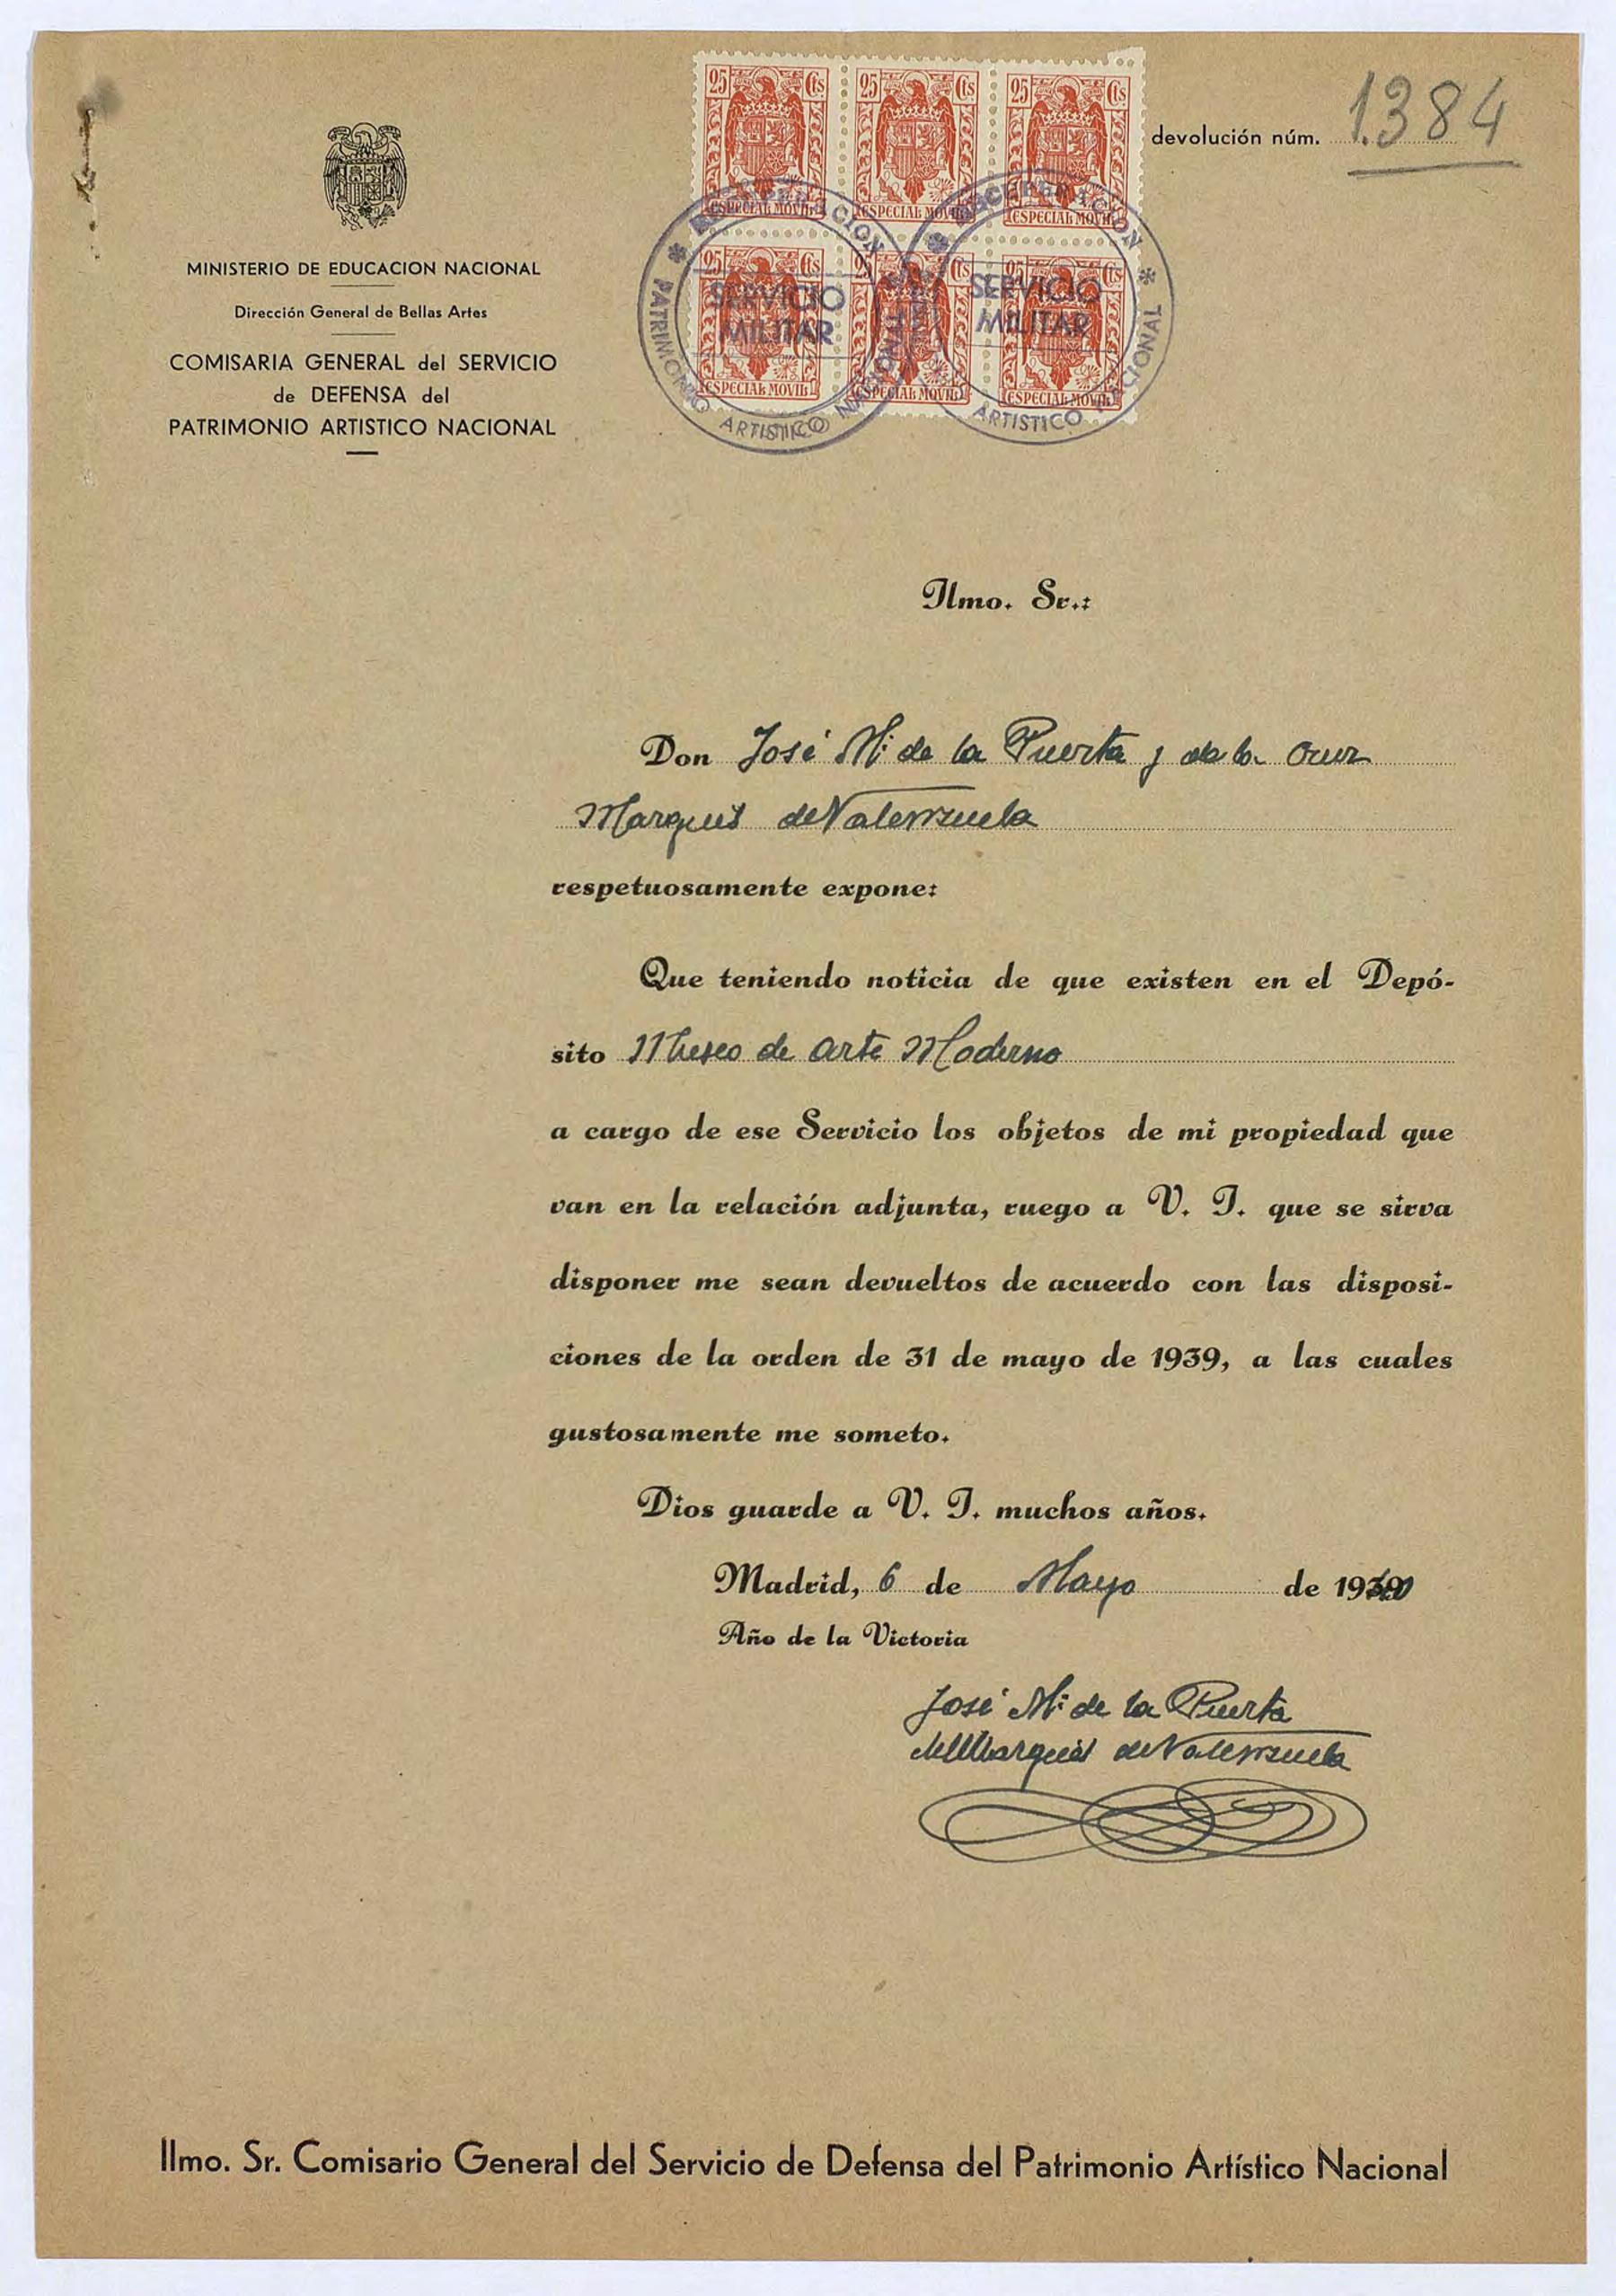 25 Cts 25 Cts 25 Cts
ESPECIAL MOVIL ESPECIAL MOVIL ESPECIAL MOVIL
25 Cts 25 Cts 25 Cts
ESPECIAL MOVIL ESPECIAL MOVIL ESPECIAL MOVIL
RECUPERACION
PATRIMONIO ARTISTICO NACIONAL
SERVICIO
MILITAR
RECUPERACION
ARTISTICO NACIONAL
SERVICIO
MILITAR
devolución núm. 1.384
MINISTERIO DE EDUCACION NACIONAL
Dirección General de Bellas Artes
COMISARIA GENERAL del SERVICIO
de DEFENSA del
PATRIMONIO ARTISTICO NACIONAL
Ilmo. Sr.:
Don José Mª de la Puerta y de la Cruz
Marqués de Valenzuela
respetuosamente expone:
Que teniendo noticia de que existen en el Depó-
sito Museo de Arte Moderno
a cargo de ese Servicio los objetos de mi propiedad que
van en la relación adjunta, ruego a V. I. que se sirva
disponer me sean devueltos de acuerdo con las disposi-
ciones de la orden de 31 de mayo de 1939, a las cuales
gustosamente me someto.
Dios guarde a V. I. muchos años.
Madrid, 6 de Mayo de 1940
Año de la Victoria
José Mª de la Puerta
Marqués de Valenzuela
Ilmo. Sr. Comisario General del Servicio de Defensa del Patrimonio Artístico Nacional